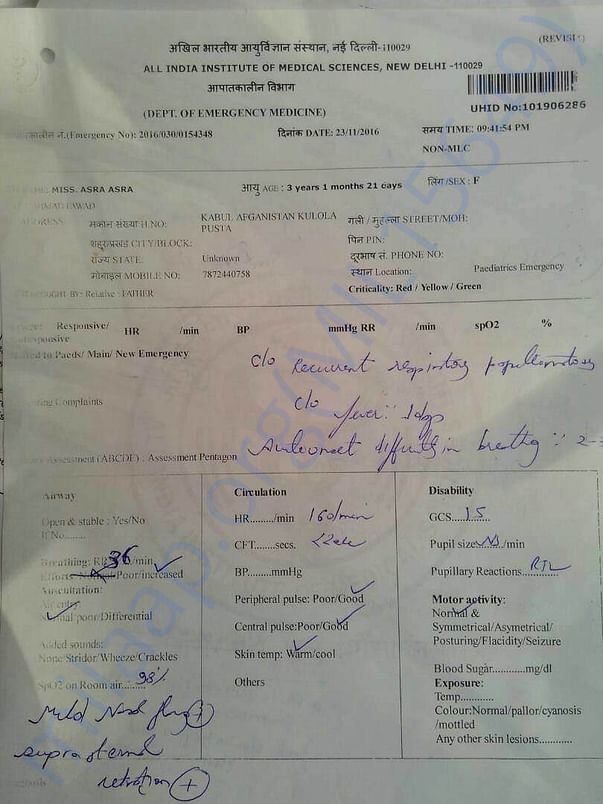 (REVISIT)
अखिल भारतीय आयुर्विज्ञान संस्थान, नई दिल्ली-110029
ALL INDIA INSTITUTE OF MEDICAL SCIENCES, NEW DELHI -110029
आपातकालीन विभाग
(DEPT. OF EMERGENCY MEDICINE)
UHID No:101906286
न.(Emergency No): 2016/030/0154348 दिनांक DATE: 23/11/2016 समय TIME: 09:41:54 PM
NON-MLC
MISS. ASRA ASRA आयु AGE : 3 years 1 months 21 days लिंग /SEX : F
ADDRESS मकान संख्या H.NO: KABUL AFGANISTAN KULOLA PUSTA गली / मुहल्ला STREET/MOH:
शहर/प्रखंड CITY/BLOCK: पिन PIN:
राज्य STATE: Unknown दूरभाष सं. PHONE NO:
मोबाइल MOBILE NO: 7872440758 स्थान Location: Paediatrics Emergency
BY: Relative : FATHER Criticality: Red / Yellow / Green
Responsive/ HR /min BP mmHg RR /min spO2 %
to Paeds/ Main/ New Emergency
c/o Recurrent respiratory papillomatosis
Complaints
c/o fever :
Assessment (ABCDE) : Assessment Pentagon difficulty in breathing :
Airway
Open & stable : Yes/No
If No.......
Breathing: RR 36/min
Efforts: Normal Poor/increased
Auscultation:
Air entry
Normal poor/Differential
Added sounds:
None Stridor/Wheeze/Crackles
SpO2 on Room air.....98%
Mild Nasal flaring +
suprasternal
retraction +
Circulation
HR......../min 160/min
CFT.......secs.
BP......mmHg
Peripheral pulse: Poor/Good
Central pulse:Poor/Good
Skin temp: Warm/cool
Others
Disability
GCS....15
Pupil size /min
Pupillary Reactions...RTL
Motor activity:
Normal &
Symmetrical/Asymetrical/
Posturing/Flacidity/Seizure
Blood Sugar..........mg/dl
Exposure:
Temp............
Colour:Normal/pallor/cyanosis
/mottled
Any other skin lesions............